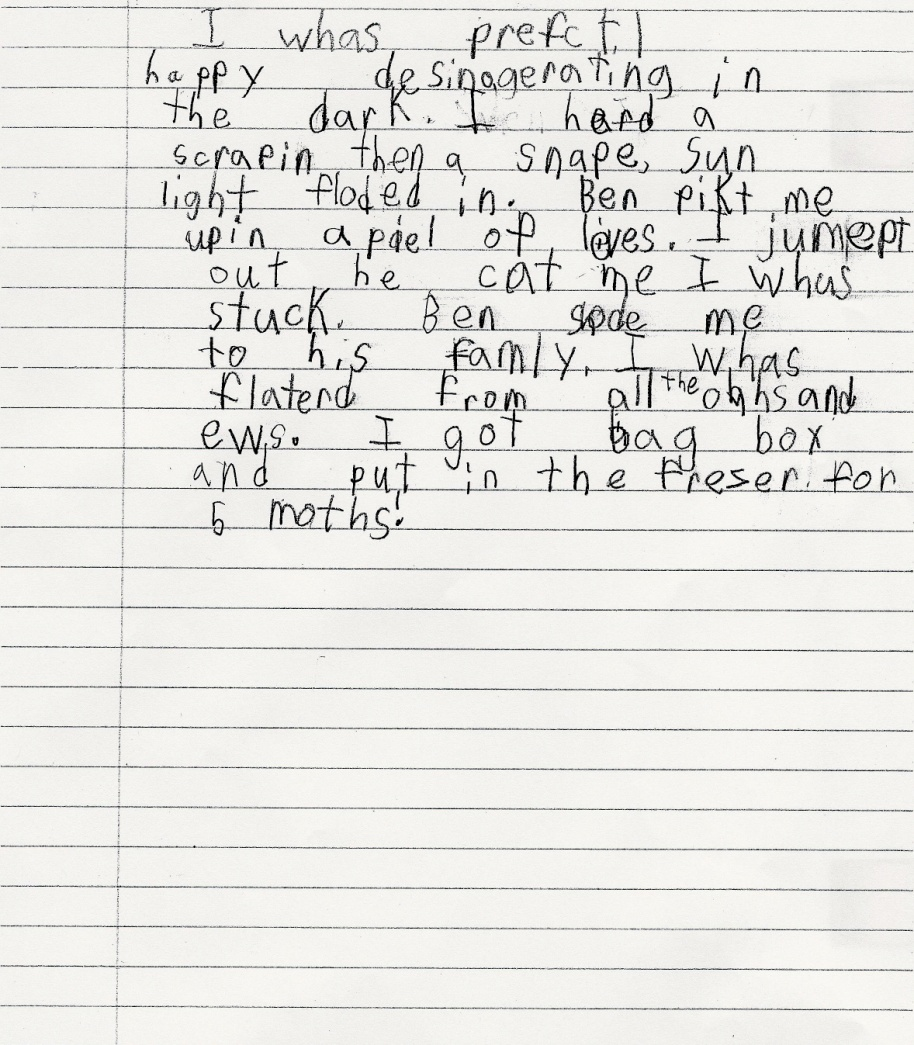 I whas prefctl
happy desinagerating in
the dark. I hard a
scrapin then a snape, Sun
light floded in. Ben pikt me
upin a piel of loves. I jumept
out he cat me I whas
stuck. Ben me
to his famly. I whas
flaterd from all the oghs and
ews. I got bag box
and put in the freser. for
5 moths!